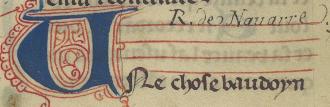 R. de Navarre
Une chose baudoyn